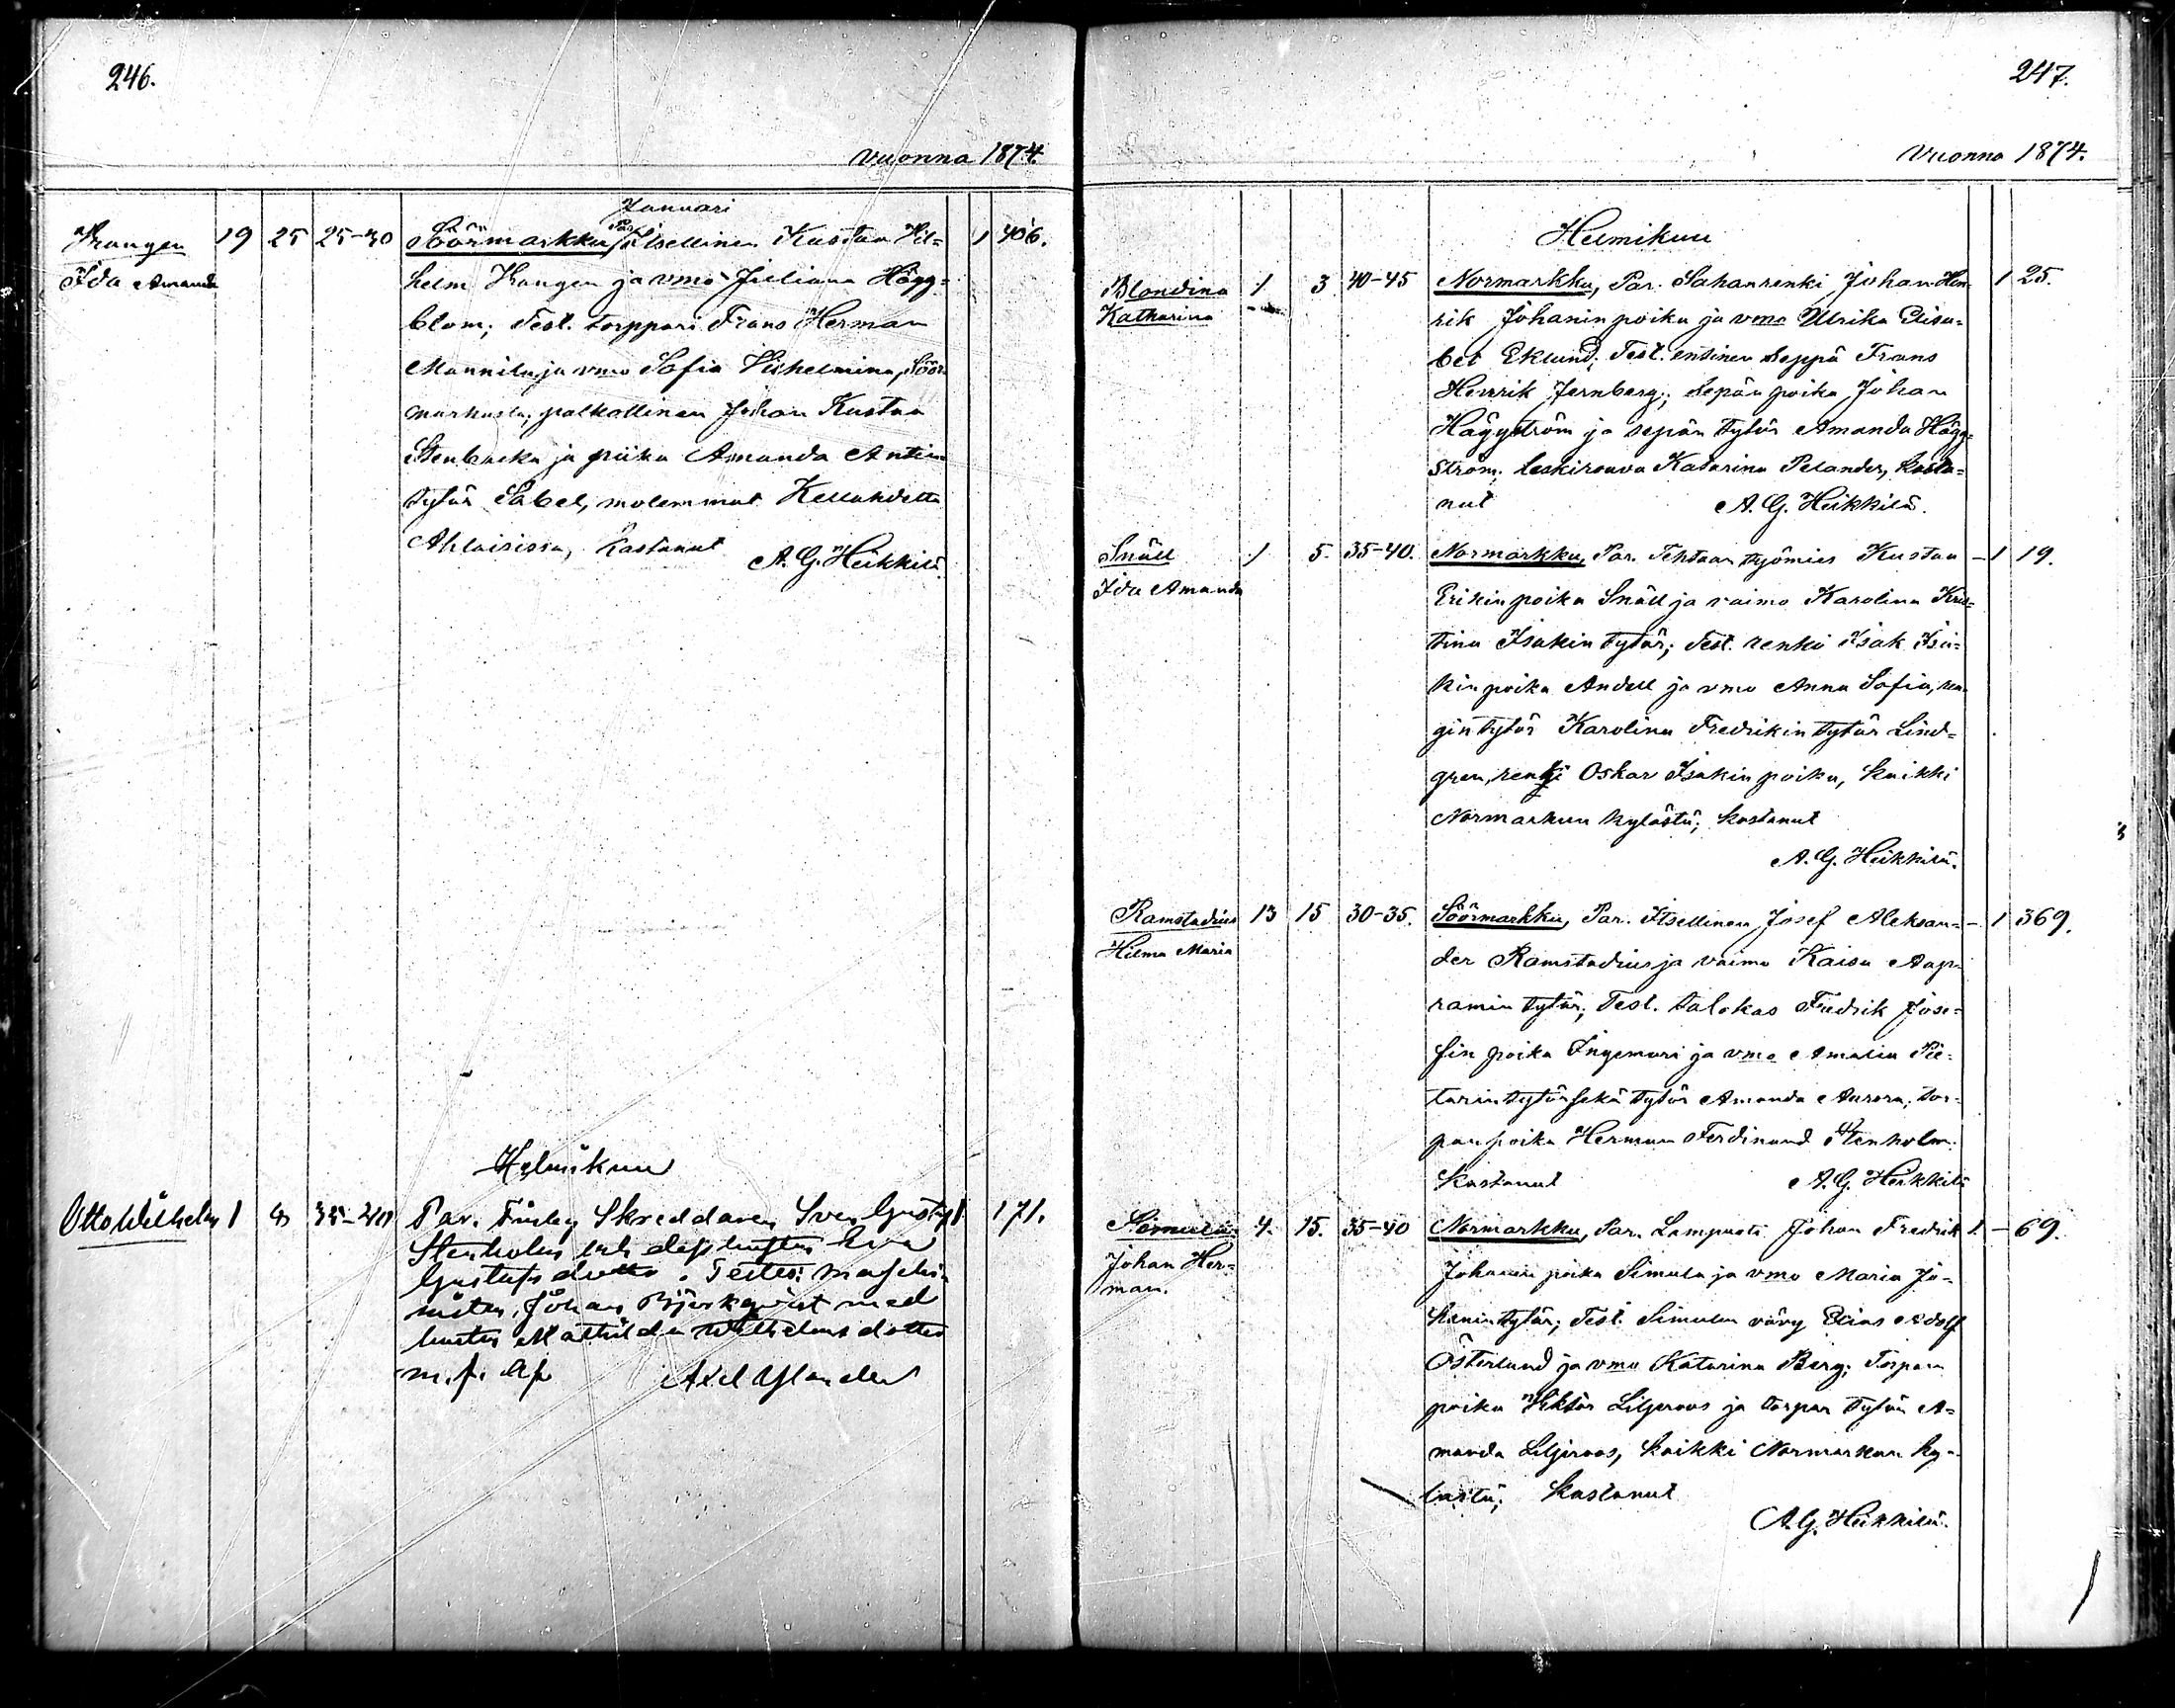 246.
vuonna 1874.
Januari
Krangen 19 25 25-30 Söörmarkku, Par. Itsellinen Kustaa Vil= 1 406.
Ida Amanda helm Krangen ja vmo Juliana Hägg=
blom; Test. torppari Frans Herman
Mannila ja vmo Sofia Vilhelmina, Söör-
markusta; palkollinen Johan Kustaa
Stenbacka ja piika Amanda Antin
tytär Sabel, molemmat Kellahdetta
Ahlaisissa, Kastanut
A. G. Heikkilä.
Helmikuu
Otto Wilhelm 1 8 35-40 Par. Finby Skreddaren Sven Gustaf 1 171.
Stenholm och dess hustru Eva
Gustafsdotter. Testes: maschi-
nisten Johan Björkqvist med
hustru Mathilda Wilhelmsdotter
m. fl. Af Axel Uhlander
247.
Vuonna 1874.
Helmikuu
Blondina 1 3 40-45 Normarkku, Par. Sahanrenki Johan Hen- 1 25.
Katharina rik Johanin poika ja vmo Ulrika Elisa=
bet Eklund; Test. entinen Seppä Frans
Henrik Jernberg; Sepän poika Johan
Häggström ja sepän tytär Amanda Hägg=
ström; Leskirouva Katarina Pelander, Kasta=
nut A. G. Heikkilä.
Snäll 1 5. 35-40. Normarkku, Par. Tehtaan työmies Kustaa - 1 19.
Ida Amanda Erikin poika Snäll ja vaimo Karolina Kris=
tina Isakin tytär; Test. renki Isak Isa=
kin poika Andell ja vmo Anna Sofia, ren-
gin tytär Karolina Fredrikin tytär Lind=
gren, renki Oskar Isakin poika, kaikki
Normarkun kylästä; kastanut
A. G. Heikkilä.
Ramstadius 13 15 30-35. Söörmarkku, Par. Itsellinen Josef Aleksan= - 1 369.
Hilma Maria der Ramstadius ja vaimo Kaisa Aap-
ramin tytär; Test. talokas Fredrik Jose=
fin poika Ingemari ja vmo Amalia Pie-
tarintytär sekä tytär Amanda Aurora; tor-
pan poika Herman Ferdinand Stenholm.
Kastanut A. G. Heikkilä
Simula 4. 15. 35-40 Normarkku, Par. Lampuoti Johan Fredrik 1. - 69.
Johan Her= Johanin poika Simula ja vmo Maria Jo-
man. hanin tytär; Test. Simulan vävy Elias Adolf
Österlund ja vmo Katarina Berg; Torpan
poika Viktor Liljeroos ja torpan tytär A=
manda Liljeroos, kaikki Normarkun ky-
lästä; Kastanut
A. G. Heikkilä.